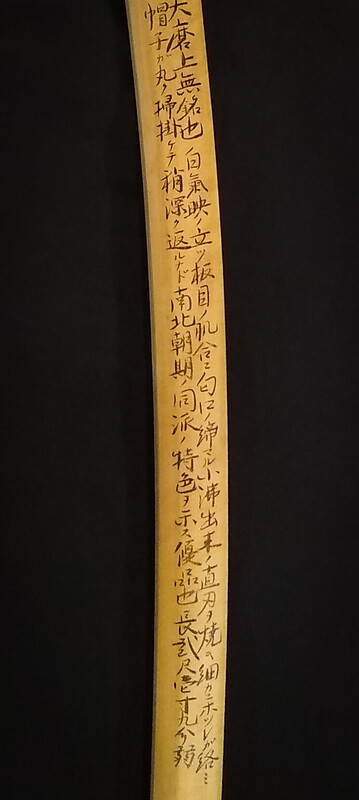 大磨上無銘也 白氣映ノ立ツ板目ノ肌合ニ匂口ノ締ル小沸出来ノ直刃ヲ焼キ細カニホツレガ絡ミ
帽子ガ丸ク掃掛ケテ稍深ク返ルナド南北朝期ノ同派ノ特色ヲ示ス優品也 長弐尺壱寸九分弱